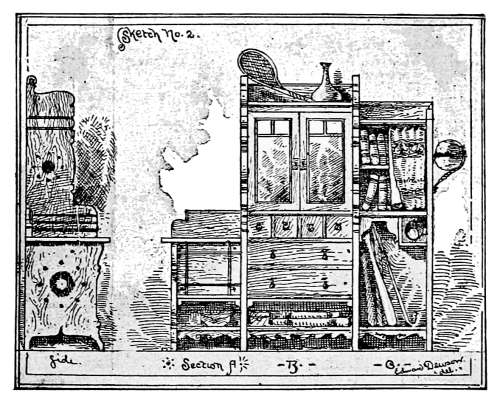 Sketch No. 2.
Side.
Section A
- B -
- C -
Edward Dewson
del.